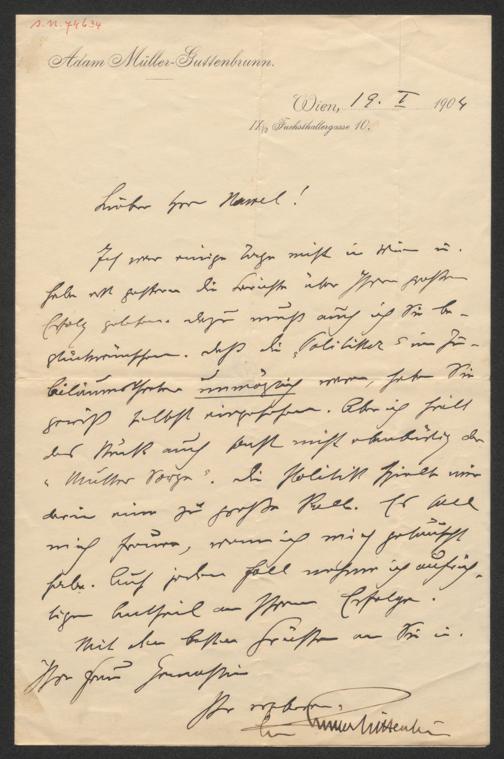 A.N. 74634
Adam Müller-Guttenbrunn.
Wien, 19. I 1904
IX/2 Fuchsthallergasse 10.
Lieber Herr Hawel!
Ich war einige Tage nicht in Wien u.
habe erst gestern die Berichte über Ihren großen
Erfolg gelesen. Dazu muß auch ich Sie be-
glückwünschen. Daß die „Politiker“ im Ju-
biläumstheater unmöglich waren, haben Sie
gewiß selbst eingesehen. Aber ich hielt
das Stück auch sonst nicht ebenbürtig der
„Mutter Sorge“. Die Politik spielte mir
darin eine zu große Rolle. Es soll
mich freuen, wenn ich mich getäuscht
habe. Auf jeden Fall nehme ich aufrich-
tigen Antheil an Ihrem Erfolge.
Mit den besten Grüßen an Sie u.
Ihre Frau Gemahlin
Ihr ergebener